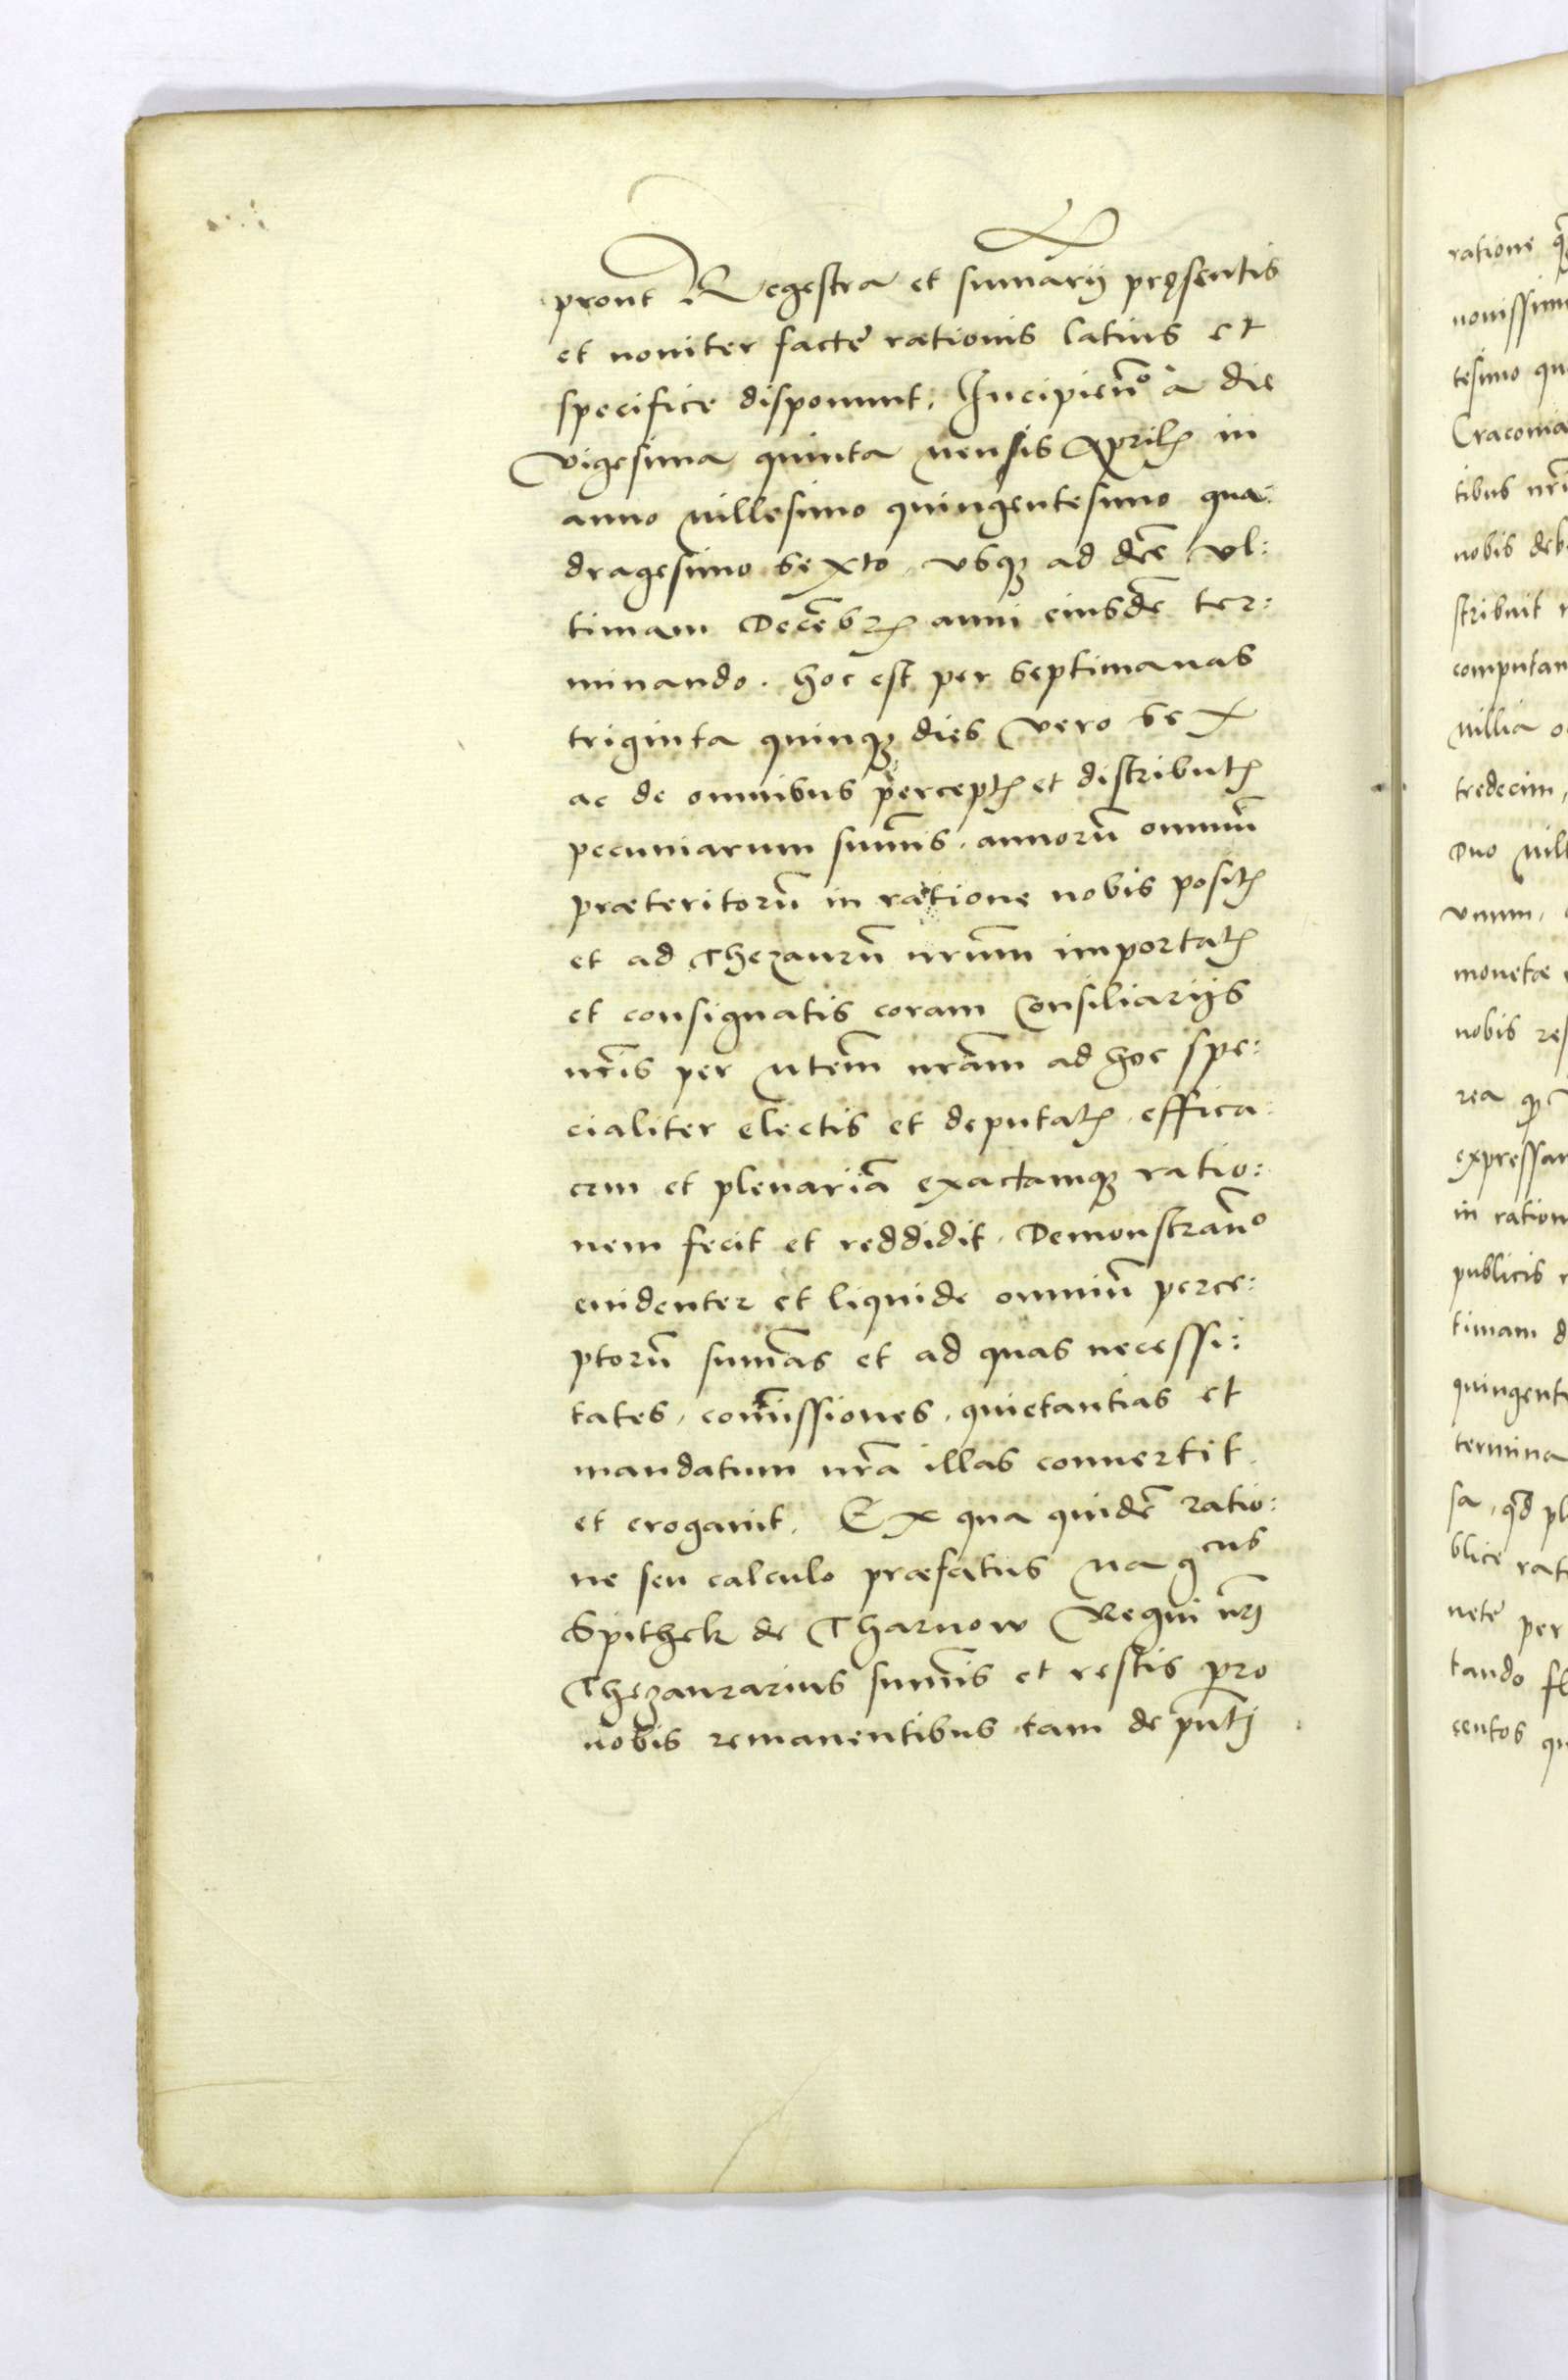 prout Regestra et sum̄arij pręsentis
et nouiter factę rationis latius et
specifice disponunt, Incipien̄o a die
vigesima quinta Mensis Aprilꝭ in
anno Millesimo quingentesimo qua:
dragesimo sexto, vsqꝫ ad diē vl:
timam Decēbrꝭ anni eiusdē ter:
minando. hoc est per septimanas
triginta quinqꝫ dies vero sex
ac de omnibus perceptꝭ et distributꝭ
pecuniarum sum̄is. annorū omniū
præteritorū in ratione nobis positꝭ
et ad Thezaurū nrūm importatꝭ
et consignatis coram Consiliarijs
nrīs per Mtem̄ nrām ad hoc spe:
cialiter electis et deputatꝭ effica:
cem et plenariā exactamqꝫ ratio:
nem fecit et reddidit. Demonstran̄o
euidenter et liquide omniū perce:
ptorū sum̄as et ad quas necessi:
tates, com̄issiones, quietantias et
mandatum nrā illas conuertit
et erogauit. Ex qua quidē ratio:
ne seu calculo præfatus Mag^cus
Spithek de Tharnow Regni nrī
Thezaurarius sum̄is et restis pro
nobis remanentibus tam de pn̄tj
ratione
nouissim
tesimo qu
Cracouia
tibus nrī
nobis deb
stribuit
computan
Millia o
tredecim,
Duo Mill
vnum,
monetæ
nobis res
rea
expressan
in ration
publicis
timam d
quingente
termina
sa, qd̄ pl
blice rat
netę per
tando fl
centos qu